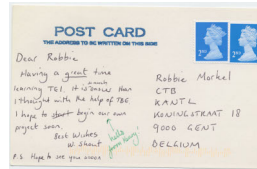 POST CARD
THE ADDRESS TO BE WRITTEN ON THIS SIDE
2ND
2ND
Dear Robbie
Having a great time
much
learning TEI. It is easier than
I thought with the help of TBE
I hope to start begin our own
project soon.
Best Wishes
W. Shaunt
hello
from
P.S. Hope to see you soon
Robbie Morkel
CTB
KANTL
KONINGSTRAAT 18
9000 GENT
BELGIUM